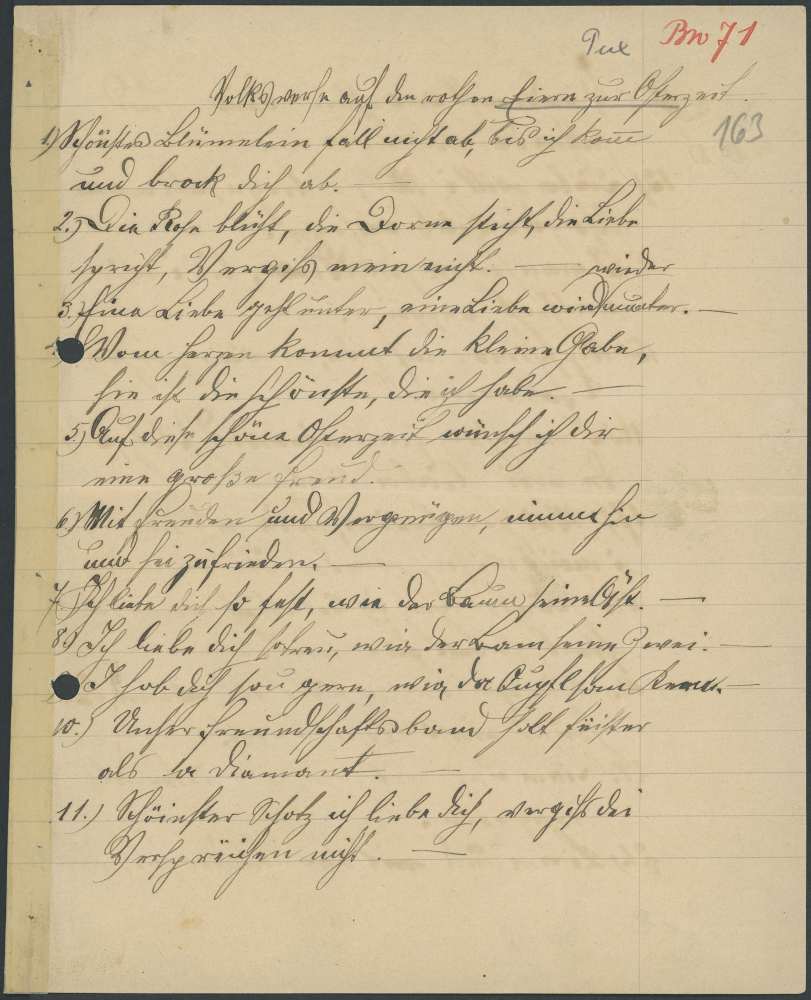 Pux Bw 71
Volksverse auf den rothen Eiern zur Osterzeit.
163
1.) Schönstes Blümelein fall nicht ab, bis ich kom̅
und brock dich ab. —
2.) Die Rose blüht, die Dorne sticht, die Liebe
spricht, Vergiß mein nicht. — wieder
3.) Eine Liebe geht unter, eine Liebe wird munter. —
Vom Herzen kommt die kleine Gabe,
sie ist die schönste, die ich habe. —
5.) Auf diese schöne Osterzeit wünsch ich dir
eine große Freud.
6.) Mit Freuden und Vergnügen, nimm hin
und sei zufrieden. —
7.) Ich liebe dich so fest, wie der Baum seine Äst. —
8.) Ich liebe dich so treu, wie der Bam seine Zwei. —
I hob dich sou gern, wia da Äupfl san Kern. —
10.) Unser Freundschaftsband holt feister
als a Diamant. —
11.) Schöinster Schotz ich liebe dich, vergiß dei
Versprechen nicht. —